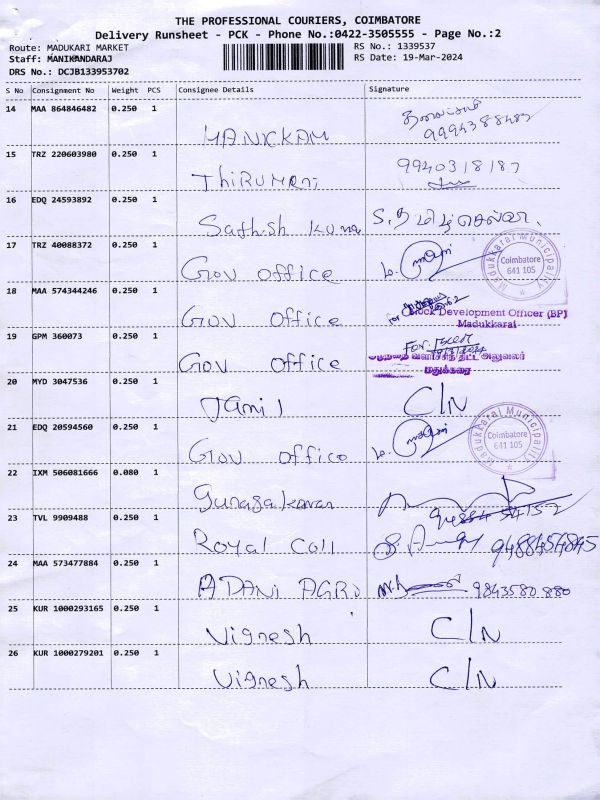 THE PROFESSIONAL COURIERS, COIMBATORE
Delivery Runsheet - PCK - Phone No.:0422-3505555 - Page No.:2
Route: MADUKARI MARKET
RS No.: 1339537
Staff: MANIKANDARAJ
RS Date: 19-Mar-2024
DRS No.: DCJB133953702
S No Consignment No Weight PCS Consignee Details Signature
14 MAA 864846482 0.250 1
MANICKAM
15 TRZ 220603980 0.250 1 9940318187
Thirumani
16 EDQ 24593892 0.250 1
Sathish Kuma
17 TRZ 40088372 0.250 1
Gov office
Madukkarai Municipality
Coimbatore
641 105
18 MAA 574344246 0.250 1
Block Development Officer (BP)
Gov office
Madukkarai
19 GPM 360073 0.250 1
For.
Gov office
வளர்ச்சித் திட்ட அலுவலர்
மதுக்கரை
20 MYD 3047536 0.250 1
Tamil C/N
21 EDQ 20594560 0.250 1
Gov office
Madukkarai Municipality
Coimbatore
641 105
22 IXM 506081666 0.080 1
23 TVL 9909488 0.250 1
Royal Coll
24 MAA 573477884 0.250 1
ADANI AGRO 9843580880
25 KUR 1000293165 0.250 1
Vignesh C/N
26 KUR 1000279201 0.250 1
Vignesh C/N